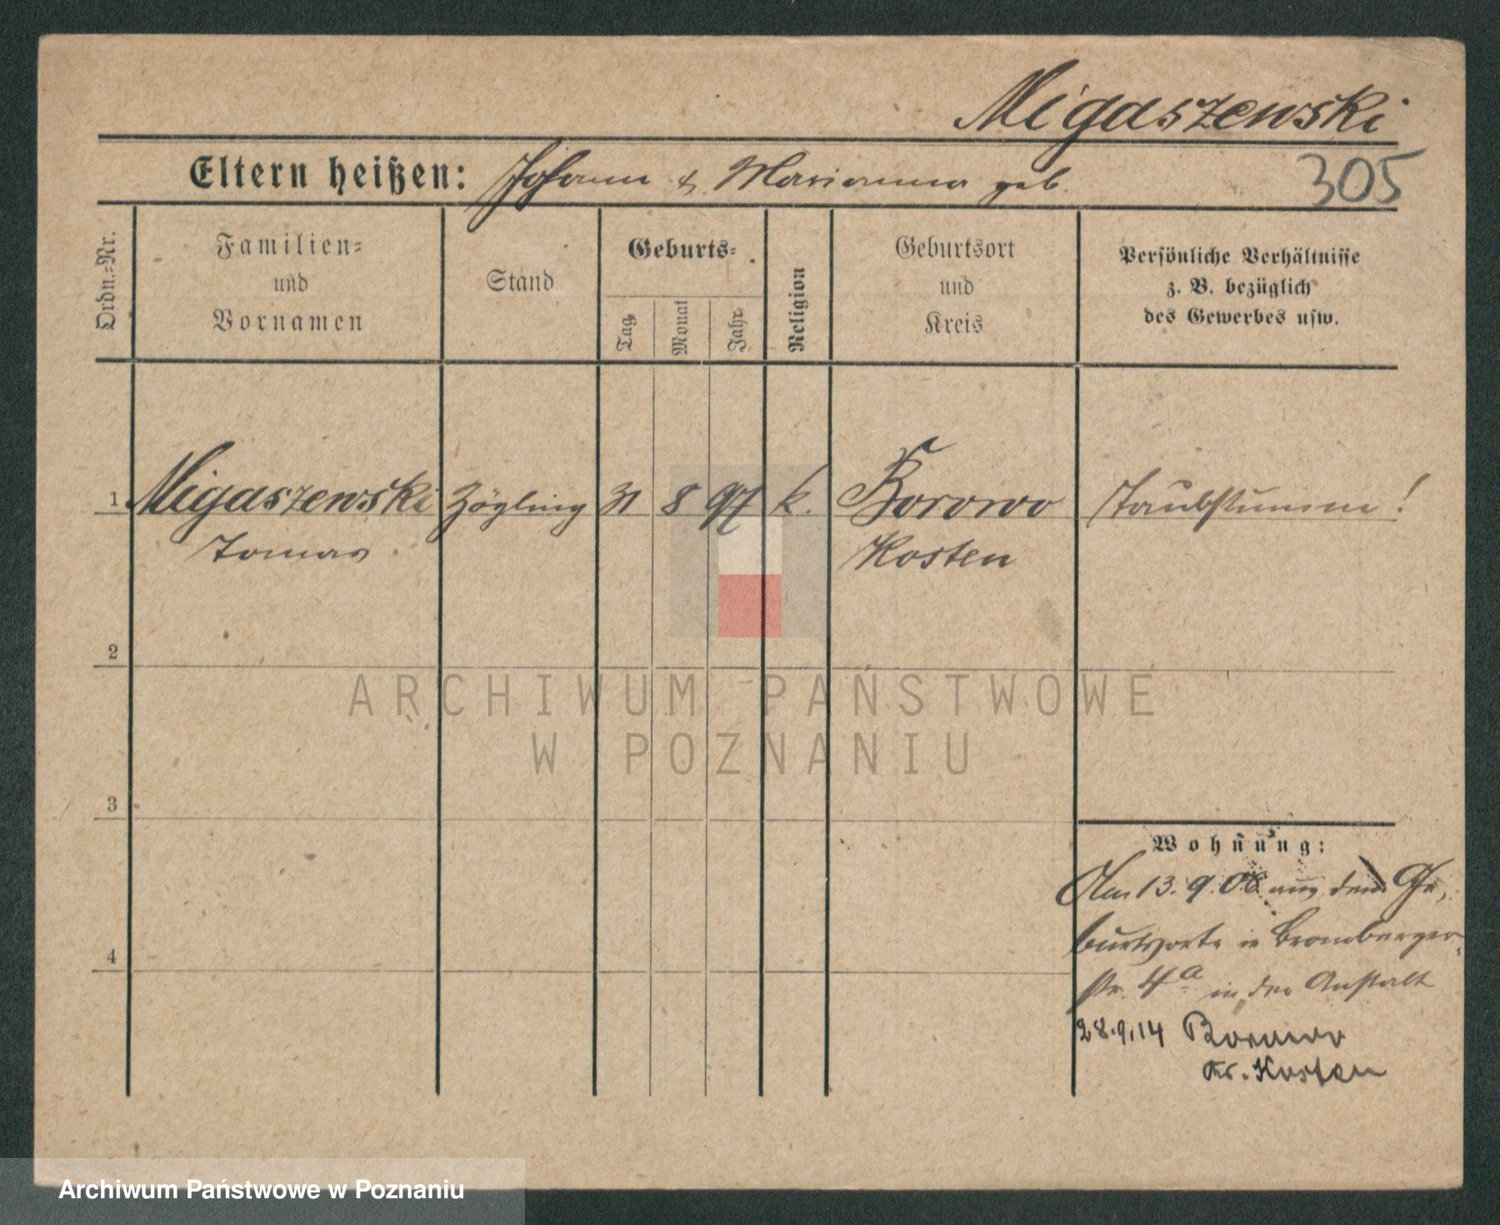 Migaszewski
305
Eltern heißen: Johann & Marianna geb.
Ordn.-Nr.
Familien-
und
Vornamen
Stand
Geburts-
Tag
Monat
Jahr
Religion
Geburtsort
und
Kreis
Persönliche Verhältnisse
z. B. bezüglich
des Gewerbes usw.
1 Migaszewski Zögling 31 8 97 k. Borowo Taubstumm!
Tomas Kosten
2
ARCHIWUM PAŃSTWOWE
W POZNANIU
3
Wohnung:
Am 13. 9. 06 aus dem Ge,
burtsorte in Bromberger-
str. 4a in der Anstalt
4
28.9.14 Borowo
Kr. Kosten
Archiwum Państwowe w Poznaniu